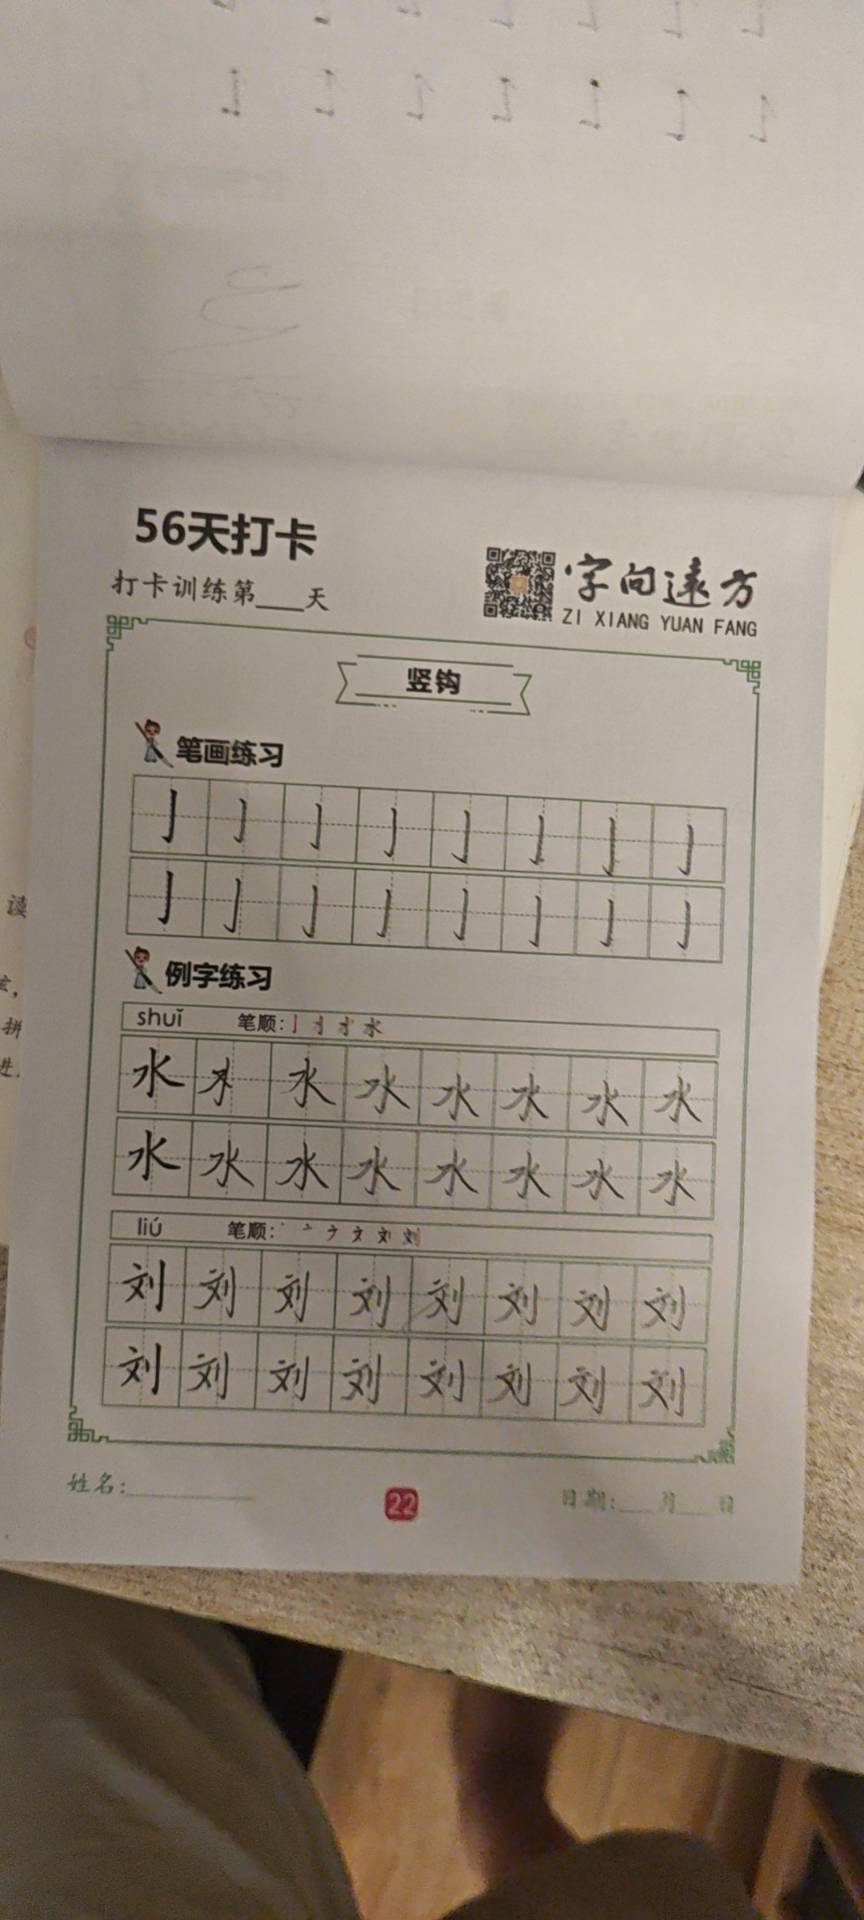 56天打卡
打卡训练第___天
字向远方
ZI XIANG YUAN FANG
竖钩
笔画练习
亅 亅 亅 亅 亅 亅 亅 亅
亅 亅 亅 亅 亅 亅 亅 亅
例字练习
shuǐ 笔顺:
水 水 水 水 水 水 水 水
水 水 水 水 水 水 水 水
liú 笔顺:
刘 刘 刘 刘 刘 刘 刘 刘
刘 刘 刘 刘 刘 刘 刘 刘
姓名:
22
日期:___月___日
读
拼
进.